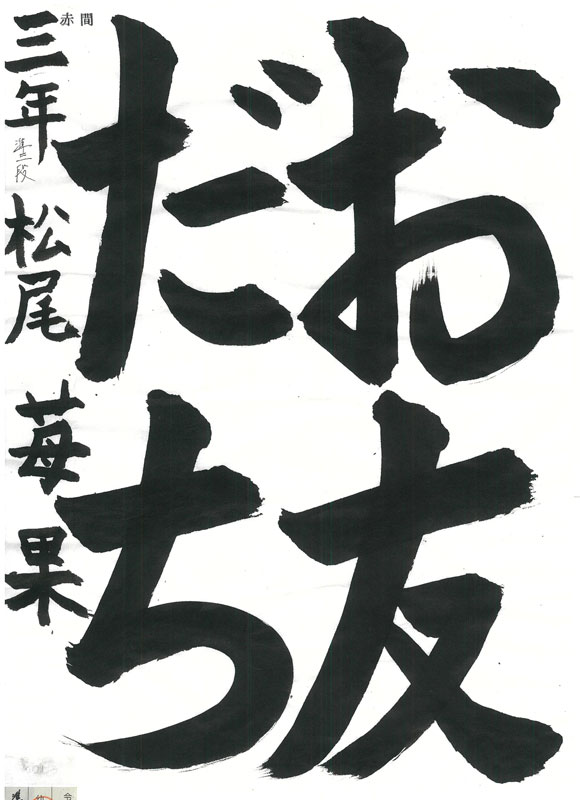 お友
だち
三年 準二段 松尾 苺果
赤間